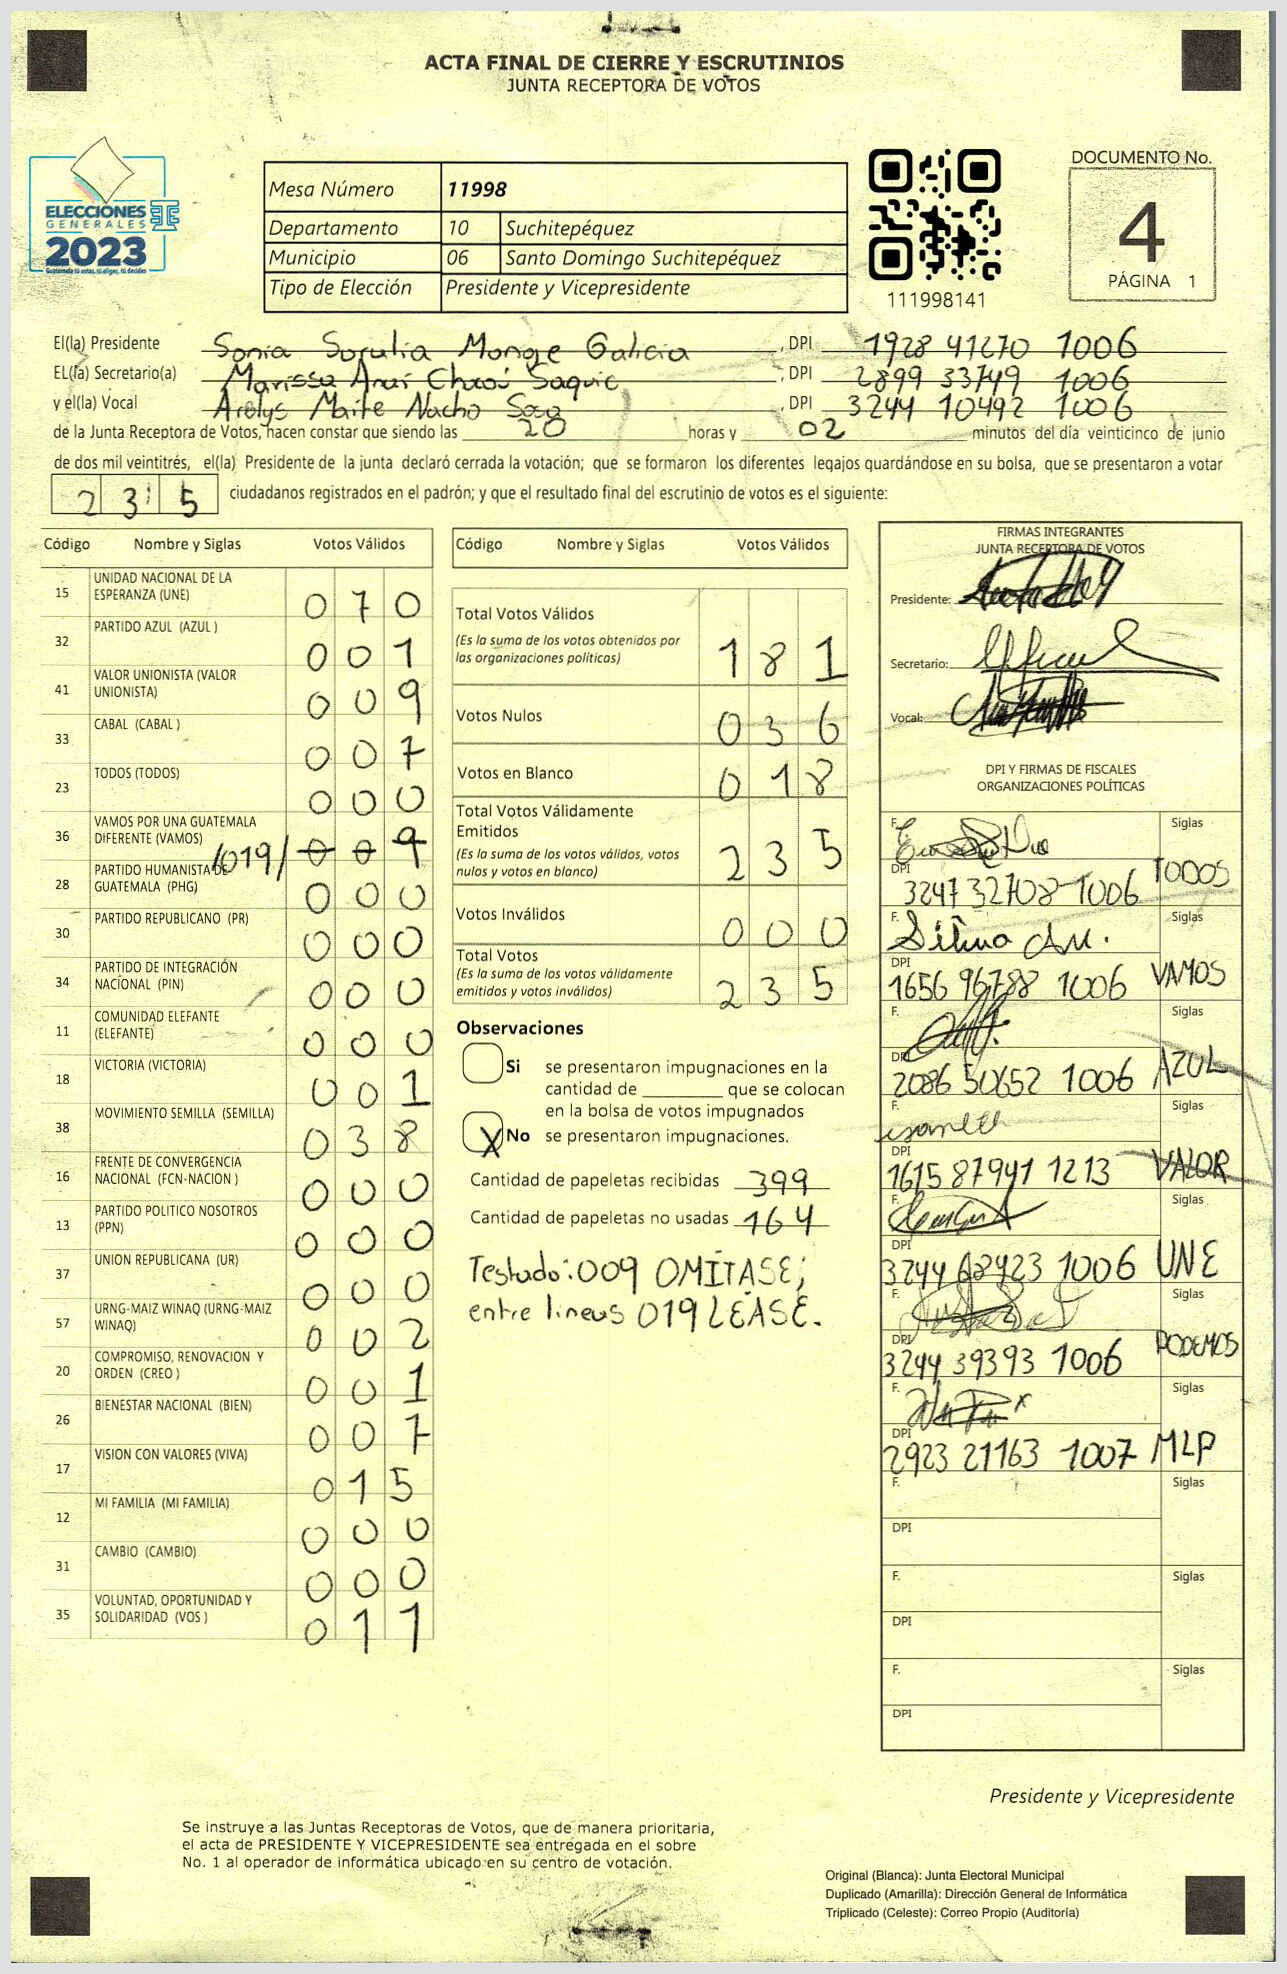 ACTA FINAL DE CIERRE Y ESCRUTINIOS
JUNTA RECEPTORA DE VOTOS
ELECCIONES
GENERALES
2023
Guatemala tú votas, tú eliges, tú decides
Mesa Número 11998
Departamento 10 Suchitepéquez
Municipio 06 Santo Domingo Suchitepéquez
Tipo de Elección Presidente y Vicepresidente
111998141
DOCUMENTO No.
4
PÁGINA 1
El(la) Presidente Sonia Monge Galicia, DPI 1928 41270 1006
EL(la) Secretario(a) Marissa Saquic, DPI 2899 33749 1006
y el(la) Vocal Arelys Maite Nacho Sosa, DPI 3244 10492 1006
de la Junta Receptora de Votos, hacen constar que siendo las 20 horas y 02 minutos del día veinticinco de junio
de dos mil veintitrés, el(la) Presidente de la junta declaró cerrada la votación; que se formaron los diferentes legajos guardándose en su bolsa, que se presentaron a votar
235 ciudadanos registrados en el padrón; y que el resultado final del escrutinio de votos es el siguiente:
Código Nombre y Siglas Votos Válidos
15 UNIDAD NACIONAL DE LA ESPERANZA (UNE) 070
32 PARTIDO AZUL (AZUL ) 001
41 VALOR UNIONISTA (VALOR UNIONISTA) 009
33 CABAL (CABAL ) 007
23 TODOS (TODOS) 000
36 VAMOS POR UNA GUATEMALA DIFERENTE (VAMOS) /019/ 009
28 PARTIDO HUMANISTA DE GUATEMALA (PHG) 000
30 PARTIDO REPUBLICANO (PR) 000
34 PARTIDO DE INTEGRACIÓN NACIONAL (PIN) 000
11 COMUNIDAD ELEFANTE (ELEFANTE) 000
18 VICTORIA (VICTORIA) 001
38 MOVIMIENTO SEMILLA (SEMILLA) 038
16 FRENTE DE CONVERGENCIA NACIONAL (FCN-NACION ) 000
13 PARTIDO POLITICO NOSOTROS (PPN) 000
37 UNION REPUBLICANA (UR) 000
57 URNG-MAIZ WINAQ (URNG-MAIZ WINAQ) 002
20 COMPROMISO, RENOVACION Y ORDEN (CREO ) 001
26 BIENESTAR NACIONAL (BIEN) 007
17 VISION CON VALORES (VIVA) 015
12 MI FAMILIA (MI FAMILIA) 000
31 CAMBIO (CAMBIO) 000
35 VOLUNTAD, OPORTUNIDAD Y SOLIDARIDAD (VOS ) 011
Código Nombre y Siglas Votos Válidos
Total Votos Válidos 181
(Es la suma de los votos obtenidos por
las organizaciones políticas)
Votos Nulos 036
Votos en Blanco 018
Total Votos Válidamente
Emitidos 235
(Es la suma de los votos válidos, votos
nulos y votos en blanco)
Votos Inválidos 000
Total Votos 235
(Es la suma de los votos válidamente
emitidos y votos inválidos)
Observaciones
Si se presentaron impugnaciones en la
cantidad de ________ que se colocan
en la bolsa de votos impugnados
X No se presentaron impugnaciones.
Cantidad de papeletas recibidas 399
Cantidad de papeletas no usadas 164
Testado: 009 OMÍTASE;
entre lineas 019 LEASE.
FIRMAS INTEGRANTES
JUNTA RECEPTORA DE VOTOS
Presidente:
Secretario:
Vocal:
DPI Y FIRMAS DE FISCALES
ORGANIZACIONES POLÍTICAS
F. Siglas
DPI 3247 32708 1006 TODOS
F. Siglas
DPI 1656 96788 1006 VAMOS
F. Siglas
DPI 2086 50652 1006 AZUL
F. Siglas
DPI 1615 87941 1213 VALOR
F. Siglas
DPI 3244 62423 1006 UNE
F. Siglas
DPI 3244 39393 1006 PODEMOS
F. Siglas
DPI 2923 21163 1007 MLP
F. Siglas
DPI
F. Siglas
DPI
F. Siglas
DPI
Presidente y Vicepresidente
Se instruye a las Juntas Receptoras de Votos, que de manera prioritaria,
el acta de PRESIDENTE Y VICEPRESIDENTE sea entregada en el sobre
No. 1 al operador de informática ubicado en su centro de votación.
Original (Blanca): Junta Electoral Municipal
Duplicado (Amarilla): Dirección General de Informática
Triplicado (Celeste): Correo Propio (Auditoría)